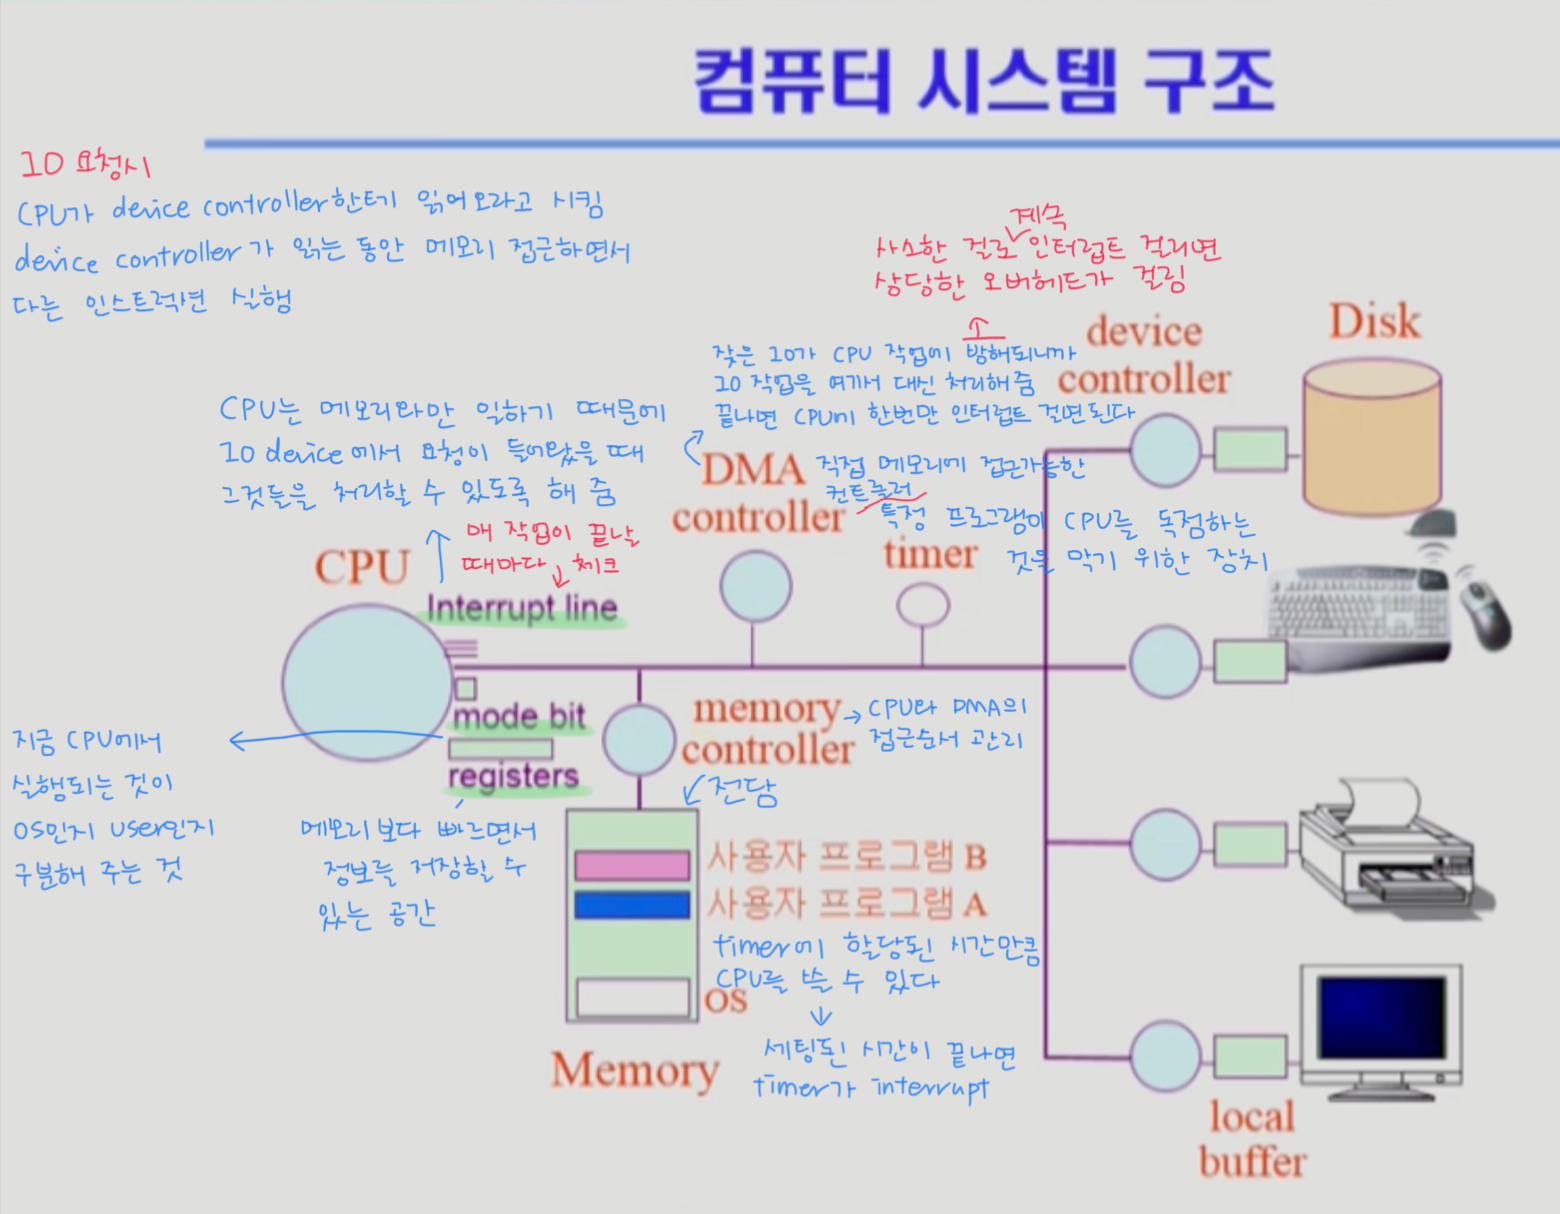 컴퓨터 시스템 구조
IO 요청시
CPU가 device controller한테 읽어오라고 시킴
device controller가 읽는 동안 메모리 접근하면서
다른 인스트럭션 실행
계속
사소한 걸로 인터럽트 걸리면
상당한 오버헤드가 걸림
잦은 IO가 CPU 작업에 방해되니까
IO 작업을 여기서 대신 처리해줌
끝나면 CPU에 한번만 인터럽트 걸면된다
device
controller
Disk
CPU는 메모리와만 일하기 때문에
IO device에서 요청이 들어왔을 때
그것들을 처리할 수 있도록 해 줌
매 작업이 끝날
때마다 체크
DMA
controller
직접 메모리에 접근가능한
컨트롤러
특정 프로그램이 CPU를 독점하는
것을 막기 위한 장치
timer
CPU
Interrupt line
mode bit
registers
지금 CPU에서
실행되는 것이
OS인지 user인지
구분해 주는 것
메모리보다 빠르면서
정보를 저장할 수
있는 공간
memory
controller
CPU와 DMA의
접근순서 관리
전담
사용자 프로그램 B
사용자 프로그램 A
timer에 할당된 시간만큼
CPU를 쓸 수 있다
OS
세팅된 시간이 끝나면
timer가 interrupt
Memory
local
buffer